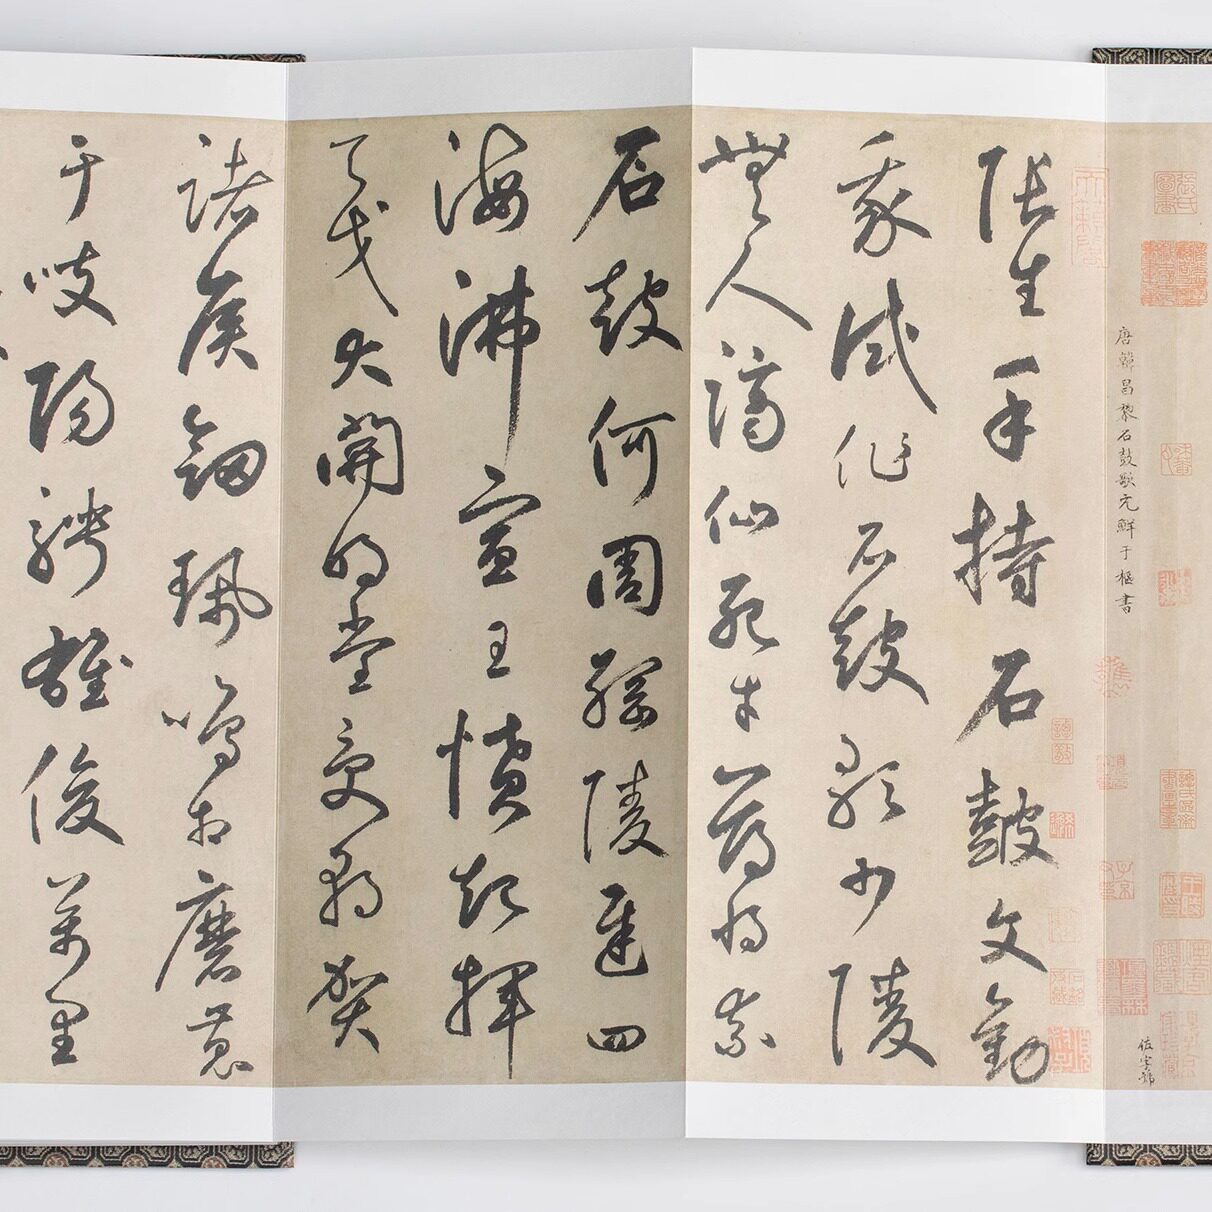 唐韓昌黎石鼓歌元鮮于樞書
佐字號
張生手持石鼓文勸
我試作石鼓歌少陵
無人謫仙死才薄將奈
石鼓何周綱陵遲四
海沸宣王憤起揮
天戈大開明堂受朝賀
諸侯劒珮鳴相磨蒐
于岐陽騁雄俊萬里